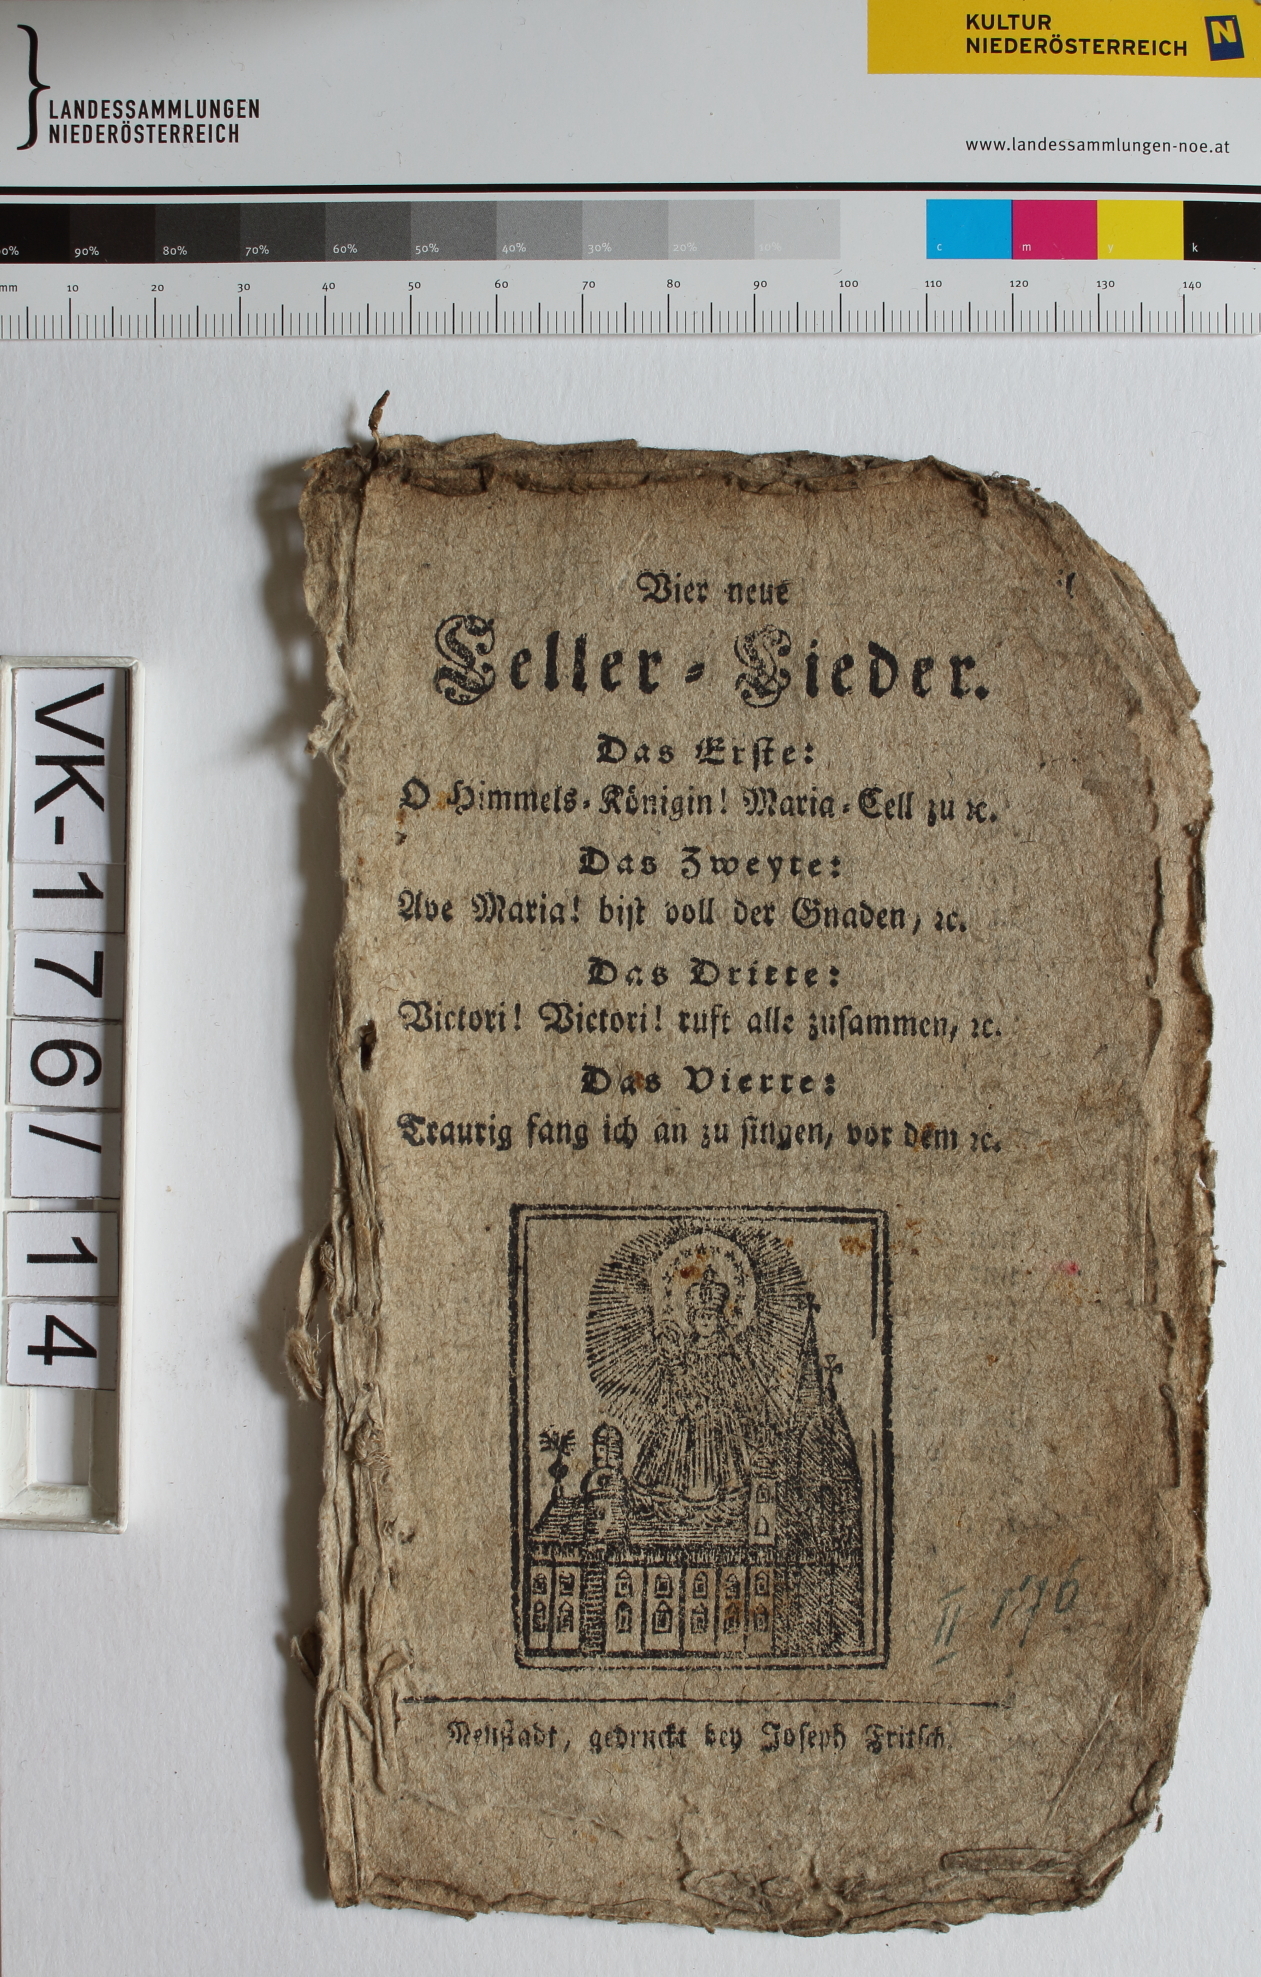 KULTUR
NIEDERÖSTERREICH
N
LANDESSAMMLUNGEN
NIEDERÖSTERREICH
www.landessammlungen-noe.at
90% 80% 70% 60% 50% 40% 30% 20% 10% c m y k
mm 10 20 30 40 50 60 70 80 90 100 110 120 130 140
VK-1776/14
Vier neue
Celler-Lieder.
Das Erste:
O Himmels-Königin! Maria-Cell zu ꝛc.
Das Zweyte:
Ave Maria! bist voll der Gnaden, ꝛc.
Das Dritte:
Victori! Victori! ruft alle zusammen, ꝛc.
Das Vierte:
Traurig fang ich an zu singen, vor dem ꝛc.
II 1776
Neustadt, gedruckt bey Joseph Fritsch.